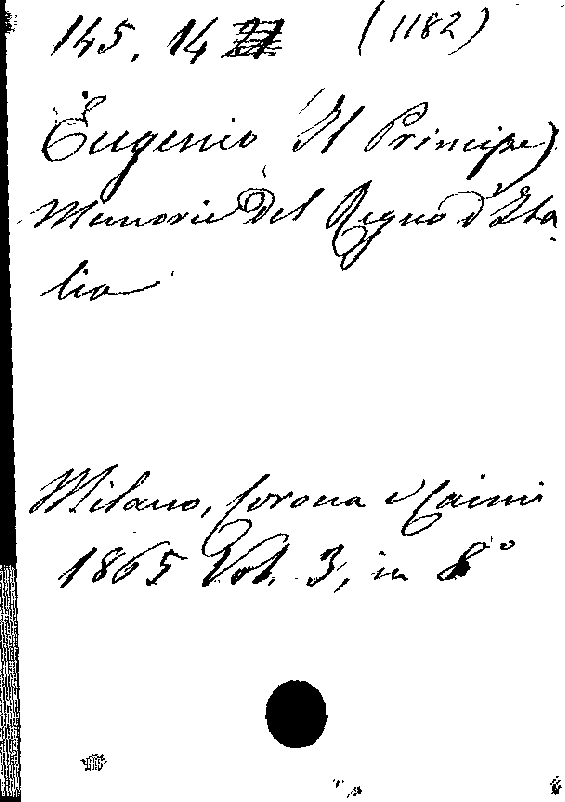 145. 14 (1182)
Eugenio (Il Principe)
Memorie del Regno d'Ita
lia
Milano, Corona e Caimi
1865 Vol. 3, in 8°